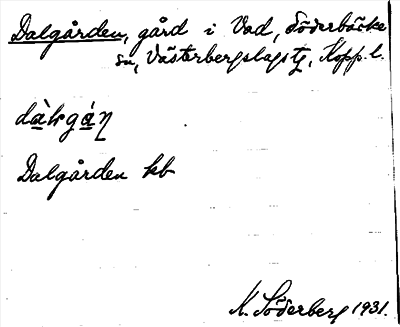 Dalgården, gård i Vad, Söderbäcke
sn, Västerbergslags tg, Kopp. l.
dàkgáη
Dalgården kb
K. Söderberg 1931.